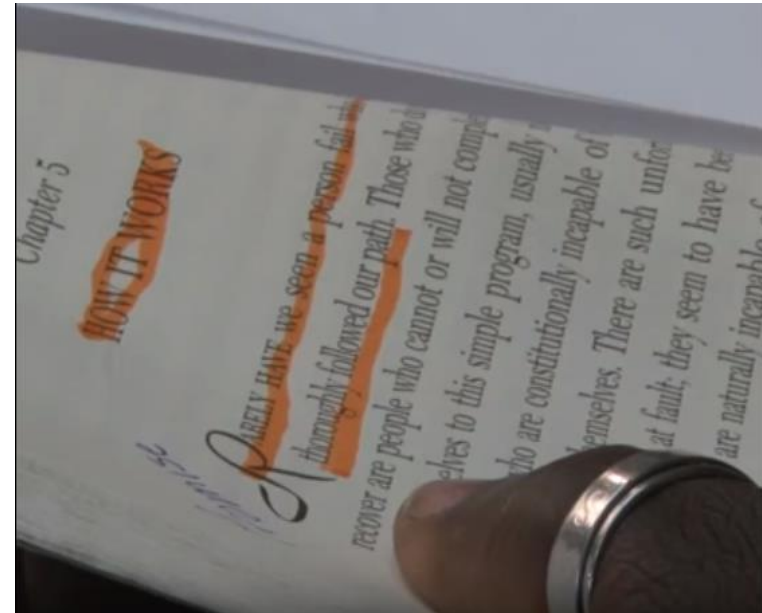 Chapter 5
HOW IT WORKS
RARELY HAVE we seen a person fail
thoroughly followed our path. Those who
recover are people who cannot or will not
to this simple program, usually
who are constitutionally incapable of
There are such
at fault; they seem to have
are naturally incapable of